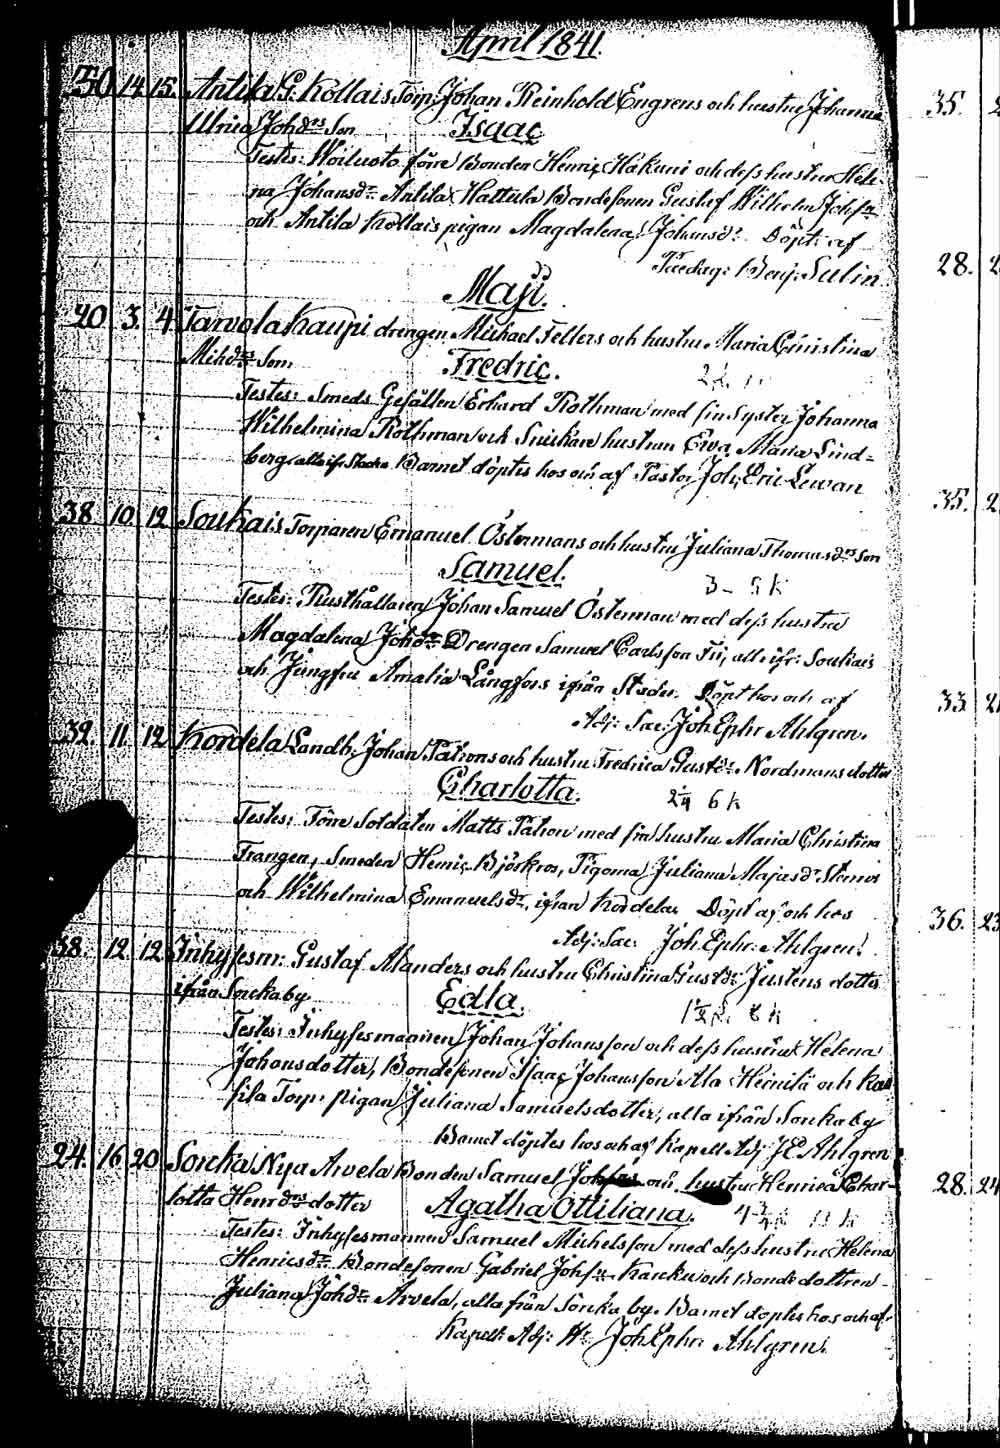 April 1841.
30 14. 15. Antila G. Kollais Torp: Johan Reinhold Engrens och hustru Johanna
Ulrica Johdrs Son
Isaac
Testes: förre Bonden Henric Håkuni och dess hustru Hele-
na Johansdr Antila Hattula Bondesonen Gustaf Wilhelm Johsn
och Antila Kollais pigan Magdalena Johansdr. Döpt af
Pædag: Benj: Sulin
Maji.
20 3. 4 Tarvola Kaupi drengen Michael Fellers och hustru Maria Christina
Mihdrs Son,
Fredric.
Testes: Smeds Gesällen Erhard Rothman med sin Syster Johanna
Wilhelmina Rothman och Snickare hustrun Ewa Maria Lind=
berg, alla ifr. Staden Barnet döptes hos och af Pastor Joh: Eric Lewan
38. 10. 12 Soukais Torparen Emanuel Östermans och hustru Juliana Thomasdrs Son
Samuel.
3 - 5 k
Testes: Rusthållaren Johan Samuel Österman med dess hustru
Magdalena Johdr Drengen Samuel Carlsson Fii, alla ifr: Soukais
och Jungfru Amalia Långfors ifrån Staden. Döpt hos och af
Adj: Sac: Joh Ephr Ahlgren.
32. 11. 12 Kordela Landb. Johan Patrons och hustru Fredrica Gustdr. Nordmans dotter
Charlotta.
2 1/4 6 k
Testes: Förre Soldaten Matts Patron med sin hustru Maria Christina
Trangen, Smeden Henric Björkros, Pigorna Juliana Majasdr
och Wilhelmina Emanuelsdr, ifrån Kordela. Döpt af och hos
Adj: Sac: Joh. Ephr: Ahlgren.
38. 12. 12. Inhysesm: Gustaf Alanders och hustru Christina Gustdr Justens dotter
ifrån Sorckaby
Edla.
Testes: Inhysesmannen Johan Johansson och dess hustru Helena
Johansdotter, Bondesonen Isaac Johansson Ala Heinilä och Kau
pila Torp: pigan Juliana Samuelsdotter, alla ifrån Sorckaby
Barnet döptes hos och af Kapell. Adj: J E Ahlgren
24. 16 20 Sorcka Nya Arvela Bonden Samuel och hustru Henrica Char-
lotta Henrdrs dotter
Agatha Ottiliana.
Testes: Inhysesmannen Samuel Michelsson med dess hustru Helena
Henricsdr Bondesonen Gabriel Johsn Karcku och Bonde dottren
Juliana Johdr Arvela, alla från Sorcka by. Barnet döptes hos och af
Kapell: Adj: Joh Ephr: Ahlgren.
35.
28.
35.
33.
36. 23
28. 24